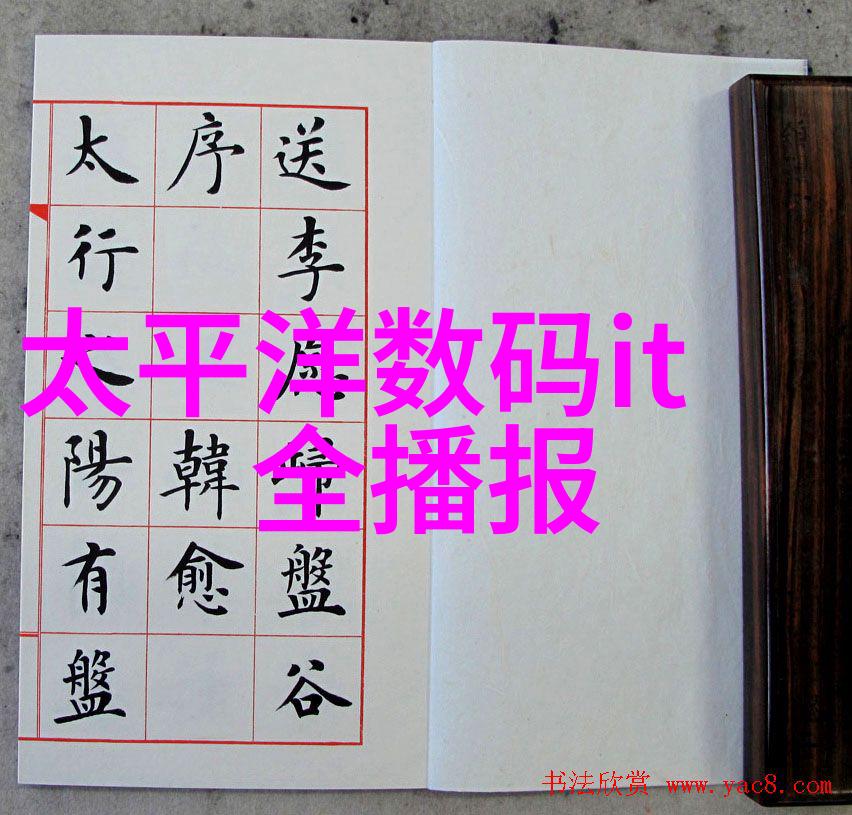 送李歸盤谷
序 韓愈
太行之陽有盤
太平洋数码it
全播报
书法欣赏 www.yac8.com